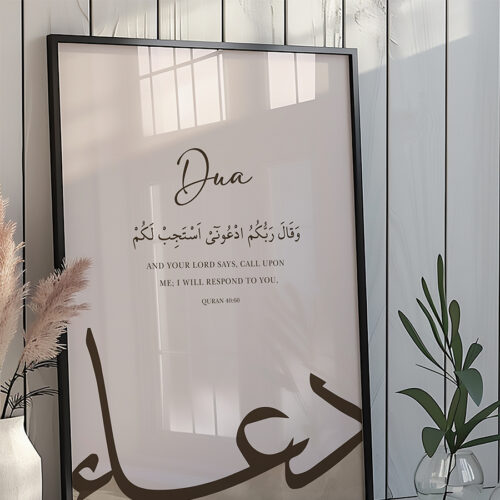 Dua
وَقَالَ رَبُّكُمُ ادْعُونَىْٓ اَسْتَجِبْ لَكُمْ
AND YOUR LORD SAYS, CALL UPON
ME; I WILL RESPOND TO YOU.
QURAN 40:60
دعاء